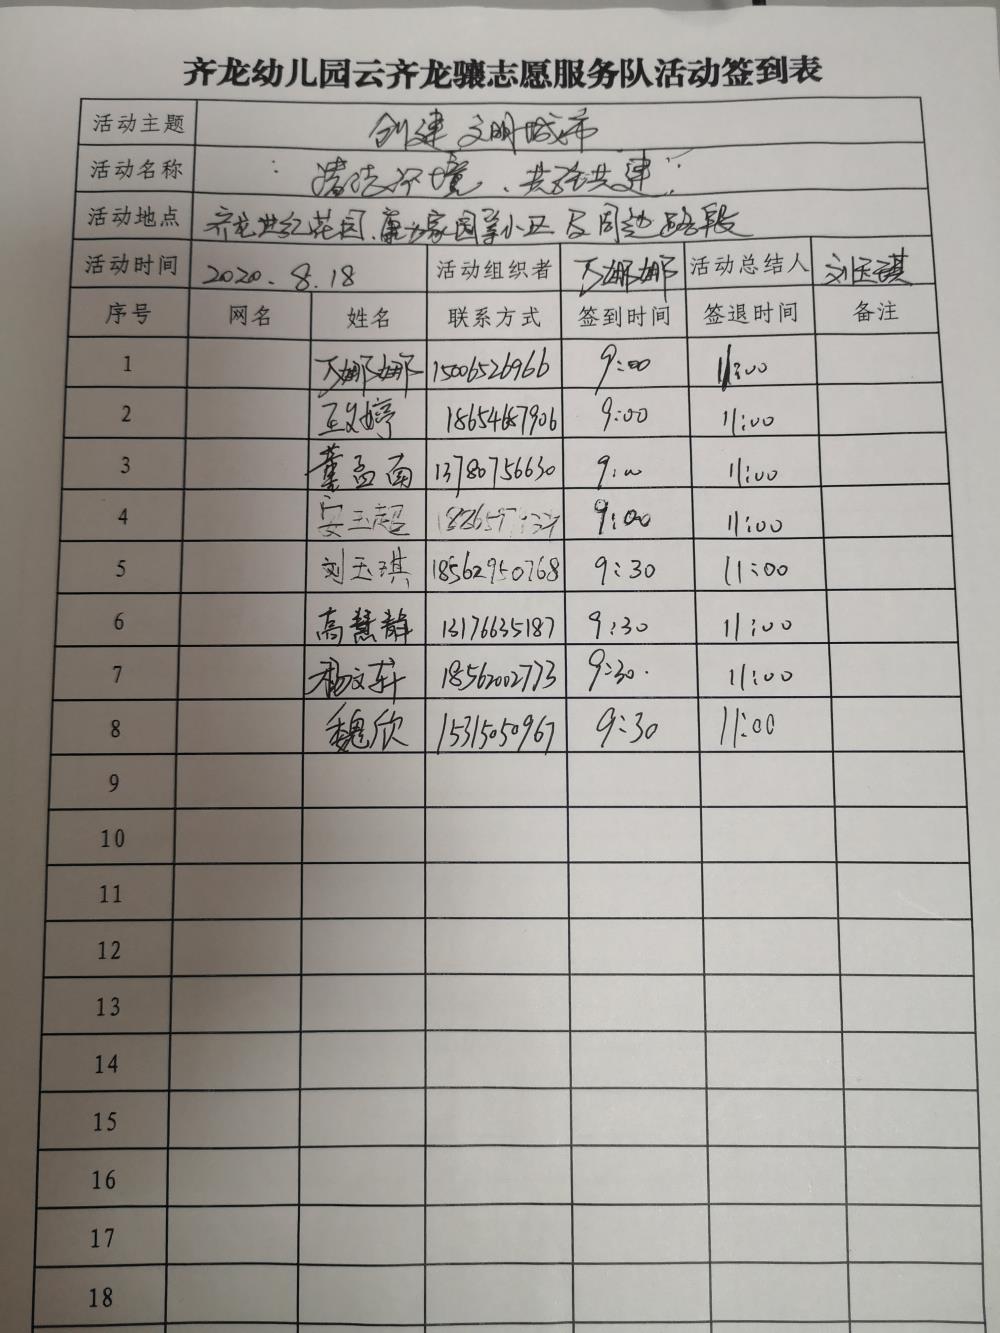 齐龙幼儿园云齐龙骧志愿服务队活动签到表
活动主题 创建文明城市
活动名称 清洁环境、共建
活动地点 齐龙世纪花园、康家园等小区及周边路段
活动时间 2020.8.18 活动组织者 娜娜 活动总结人 刘玉琪
序号 网名 姓名 联系方式 签到时间 签退时间 备注
1 娜娜 15006526966 9:00 11:00
2 王文婷 18654687906 9:00 11:00
3 董孟南 13780756630 9:00 11:00
4 安玉超 9:00 11:00
5 刘玉琪 18562950768 9:30 11:00
6 高慧静 13176635187 9:30 11:00
7 杨文轩 18562002773 9:30. 11:00
8 魏欣 15315050967 9:30 11:00
9
10
11
12
13
14
15
16
17
18